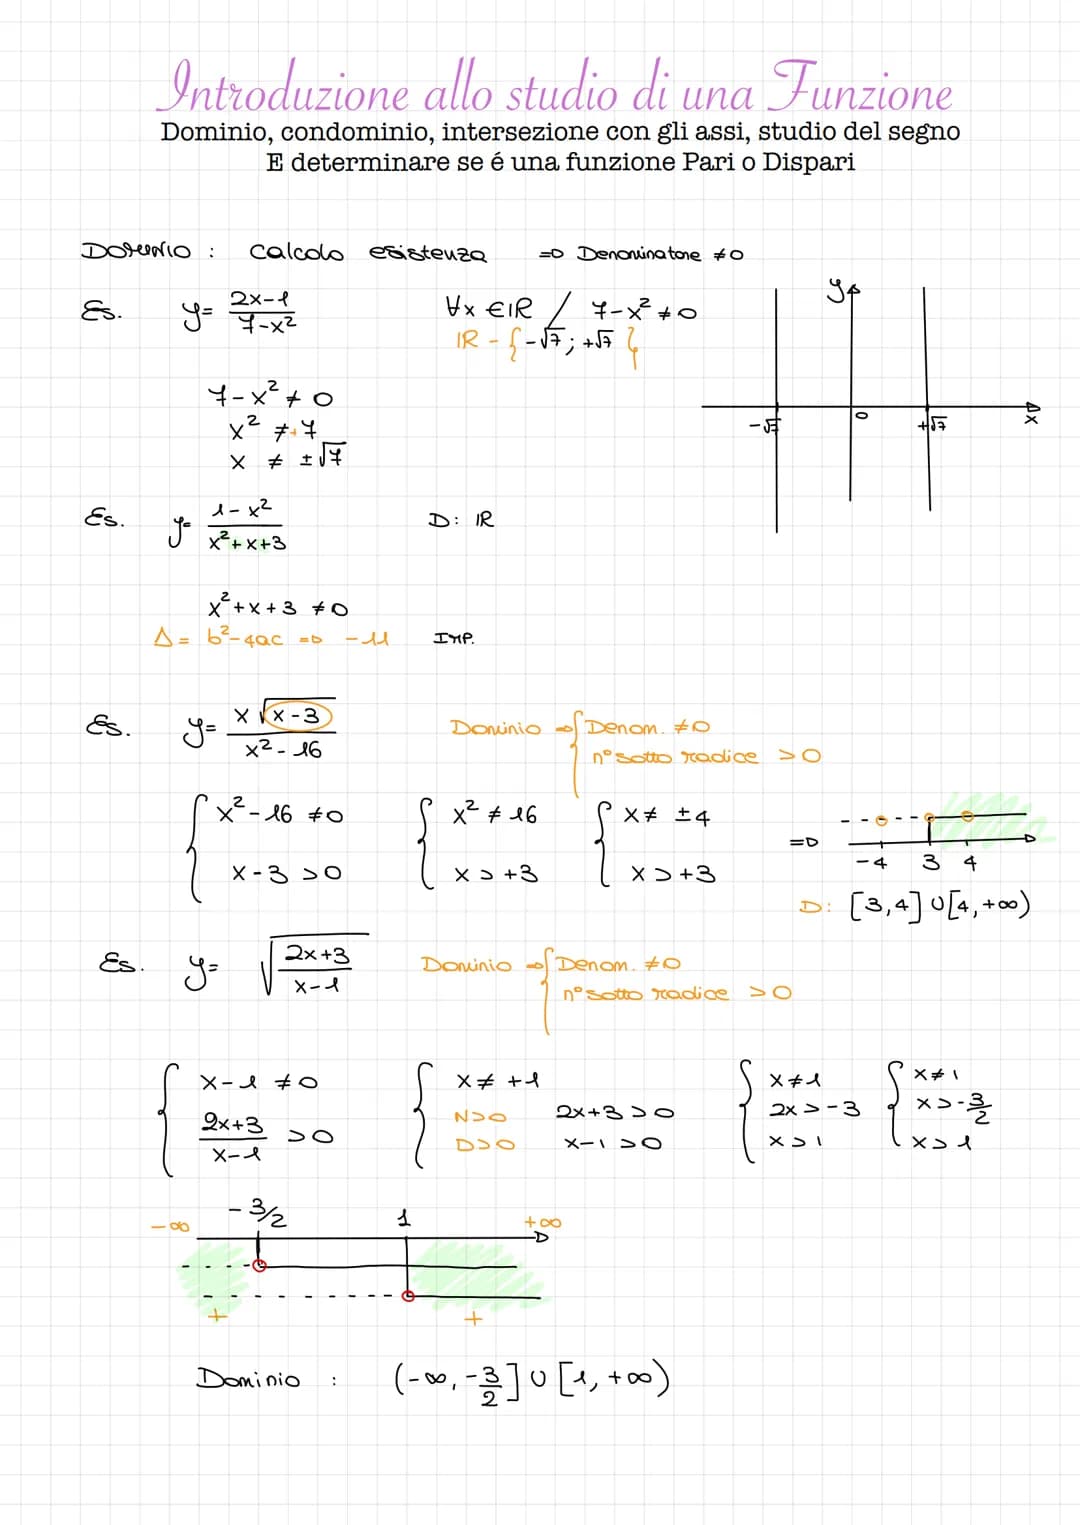 Introduzione allo studio di una Funzione
Dominio, condominio, intersezione con gli assi, studio del segno
E determinare se é una funzione Pari o Dispari
Dominio : calcolo esistenza => Denominatore ≠0
Es. y= 2x-1 / 7-x² ∀x ∈ℝ / 7-x² ≠0
ℝ - {-√7; +√7}
y
7-x² ≠ 0
x² ≠+7
x ≠ ±√7
-√7 0 +√7 x
Es. y= 1-x² / x²+x+3 D: ℝ
x²+x+3 ≠0
Δ= b²-4ac => -11 IMP.
Es. y= x√x-3 / x²-16 Dominio => { Denom. ≠0
n° sotto radice >0
{ x²-16 ≠0 { x² ≠ 16 { x≠ ±4
x-3 >0 x > +3 x > +3
=> -4 3 4
D: [3,4] ∪ [4,+∞)
Es. y= √2x+3 / x-1 Dominio => { Denom. ≠0
n° sotto radice >0
{ x-1 ≠0 { x≠ +1 { x≠1 { x≠1
2x+3 / x-1 >0 N>0 2x+3 >0 2x > -3 x > -3/2
D>0 x-1 >0 x > 1 x > 1
-∞ -3/2 1 +∞
+ +
Dominio : (-∞, -3/2] ∪ [1, +∞)